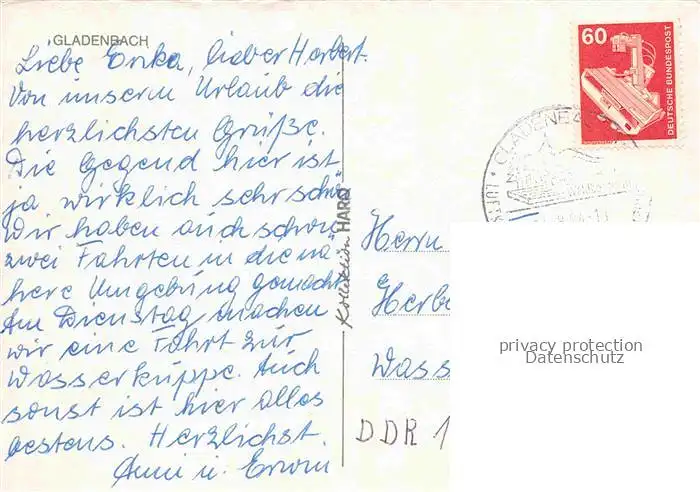 GLADENBACH
Liebe Erika, lieber Herbert.
Von unserm Urlaub die
herzlichsten Grüße.
Die Gegend hier ist
ja wirklich sehr schön
Wir haben auch schon
zwei Fahrten in die nä-
here Umgebung gemacht
Am Dienstag machen
wir eine Fahrt zur
Wasserkuppe. Auch
sonst ist hier alles
bestens. Herzlichst.
Anni u. Erwin
Kollektion HARO
60
DEUTSCHE BUNDESPOST
GLADENBA
Herrn
Herbe
Wass
DDR 1
privacy protection
Datenschutz